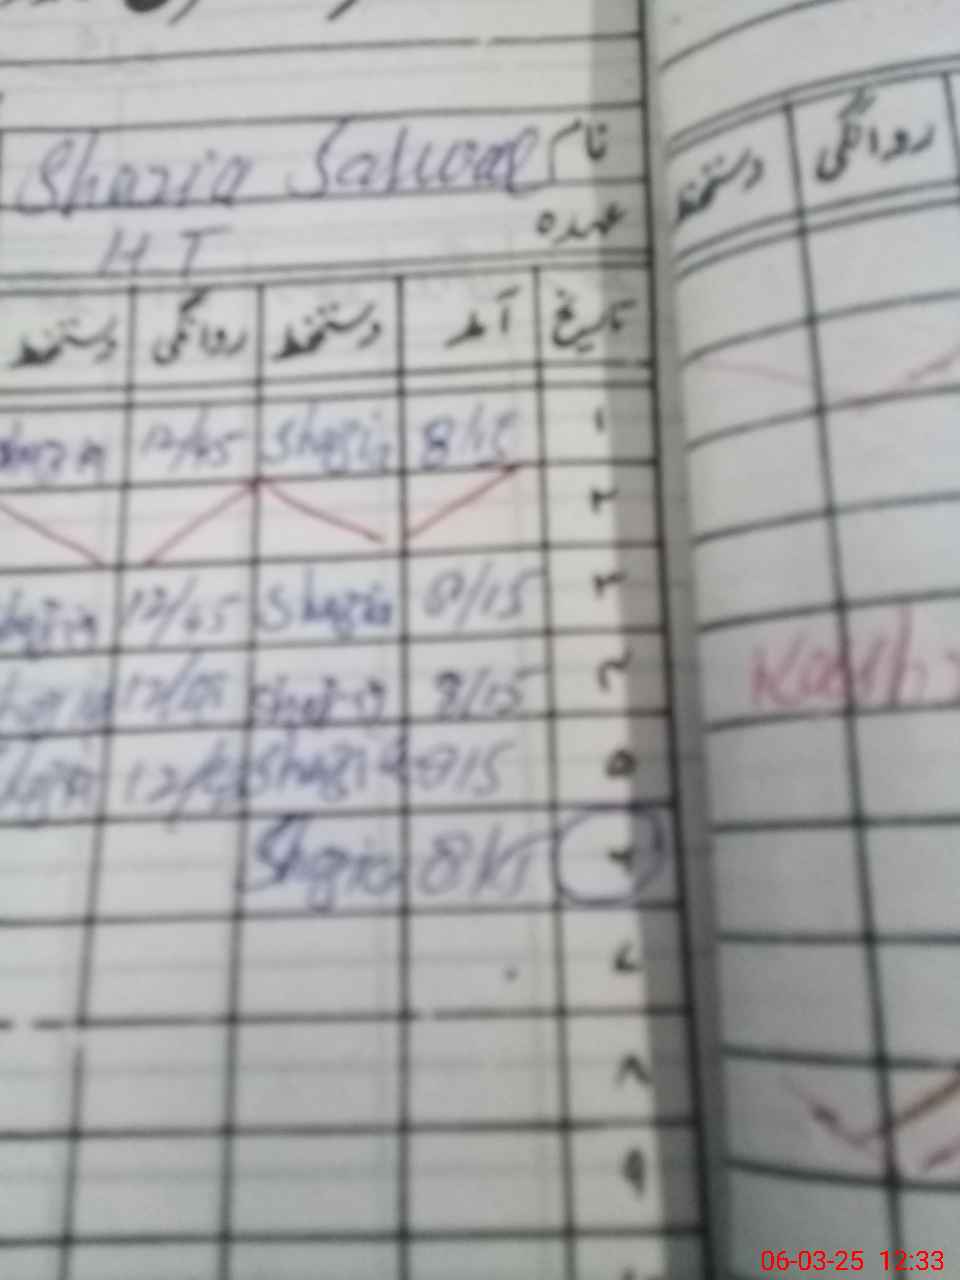 نام Shazia
عہدہ HT
تاریخ آمد دستخط روانگی دستخط
۱ 8/15 Shazia 12/45 Shazia
۲
۳ 8/15 Shazia 12/45 Shazia
۴ 8/15 Shazia Shazia
۵ 815 Shazia Shazia
۶ Shazia
۷
۸
۹
روانگی دستخط
06-03-25 12:33